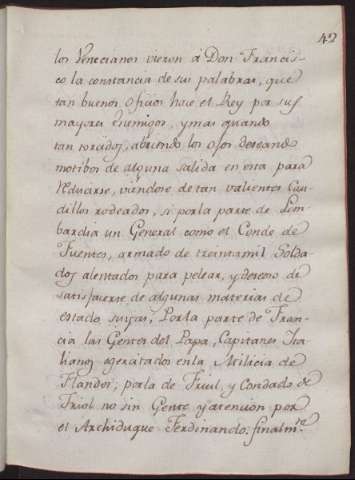 42
los Venecianos vieron á Don Francis-
co la constancia de sus palabras, que
tan buenos oficios hace el Rey por sus
mayores enemigos, y mas quando
tan torcidos, abriendo los ojos deseando
motibos de alguna salida en esta para
reducirse, viendose de tan valientes Cau-
dillos rodeados, si por la parte de Lom-
bardia un General como el Conde de
Fuentes, armado de treinta mil Solda-
dos alentados para pelear, y deseoso de
satisfacerse de algunas materias de
estado suyas, Por la parte de Fran-
cia las Gentes del Papa, Capitanes Ita-
lianos egercitados en la Milicia de
Flandes, por la de Friul, y Condado de
Tirol no sin Gente y atencion por
el Archiduque Ferdinando: finalm.te